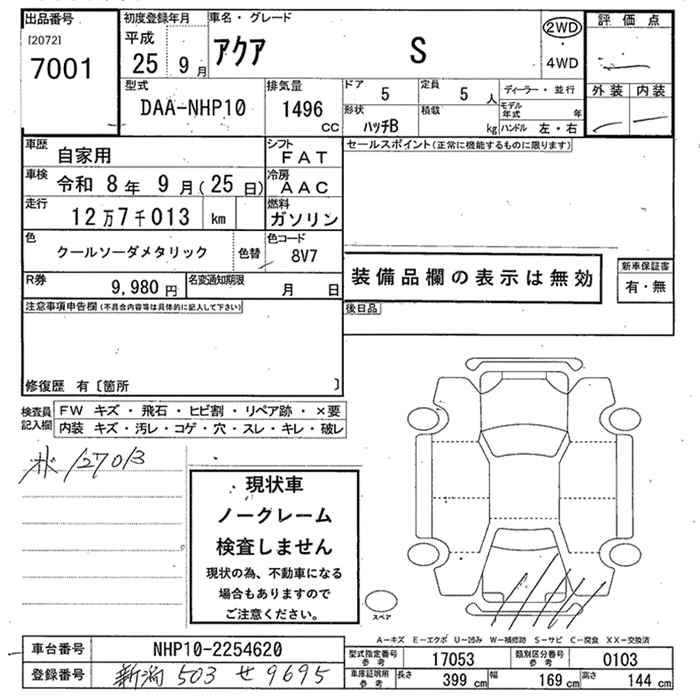 出品番号
[2072]
7001
初度登録年月
平成
25 9月
車名・グレード
アクア S
2WD
・
4WD
評価点
外装 内装
型式
DAA-NHP10
排気量
1496
cc
ドア
5
定員
5 人
ディーラー・並行
モデル年式 年
形状
ハッチB
積載
kg
ハンドル 左・右
車歴
自家用
シフト
FAT
セールスポイント(正常に機能するものに限ります)
車検
令和 8年 9月(25日)
冷房
AAC
走行
12万7千013 km
燃料
ガソリン
色
クールソーダメタリック
色替
色コード
8V7
装備品欄の表示は無効
新車保証書
有・無
R券
9,980 円
名変通知期限
月 日
注意事項申告欄(不具合内容等は具体的に記入して下さい)
後日品
修復歴 有〔箇所 〕
検査員記入欄
FW キズ・飛石・ヒビ割・リペア跡・×要
内装 キズ・汚レ・コゲ・穴・スレ・キレ・破レ
ボ 127013
現状車
ノークレーム
検査しません
現状の為、不動車になる
場合もありますので
ご注意ください。
スペア
A-キズ E-エクボ U-凹み W-補修跡 S-サビ C-腐食 XX-交換済
車台番号
NHP10-2254620
型式指定番号
参考
17053
類別区分番号
参考
0103
登録番号
新潟 503 せ 9695
車庫証明用
参考
長さ
399 cm
幅
169 cm
高さ
144 cm